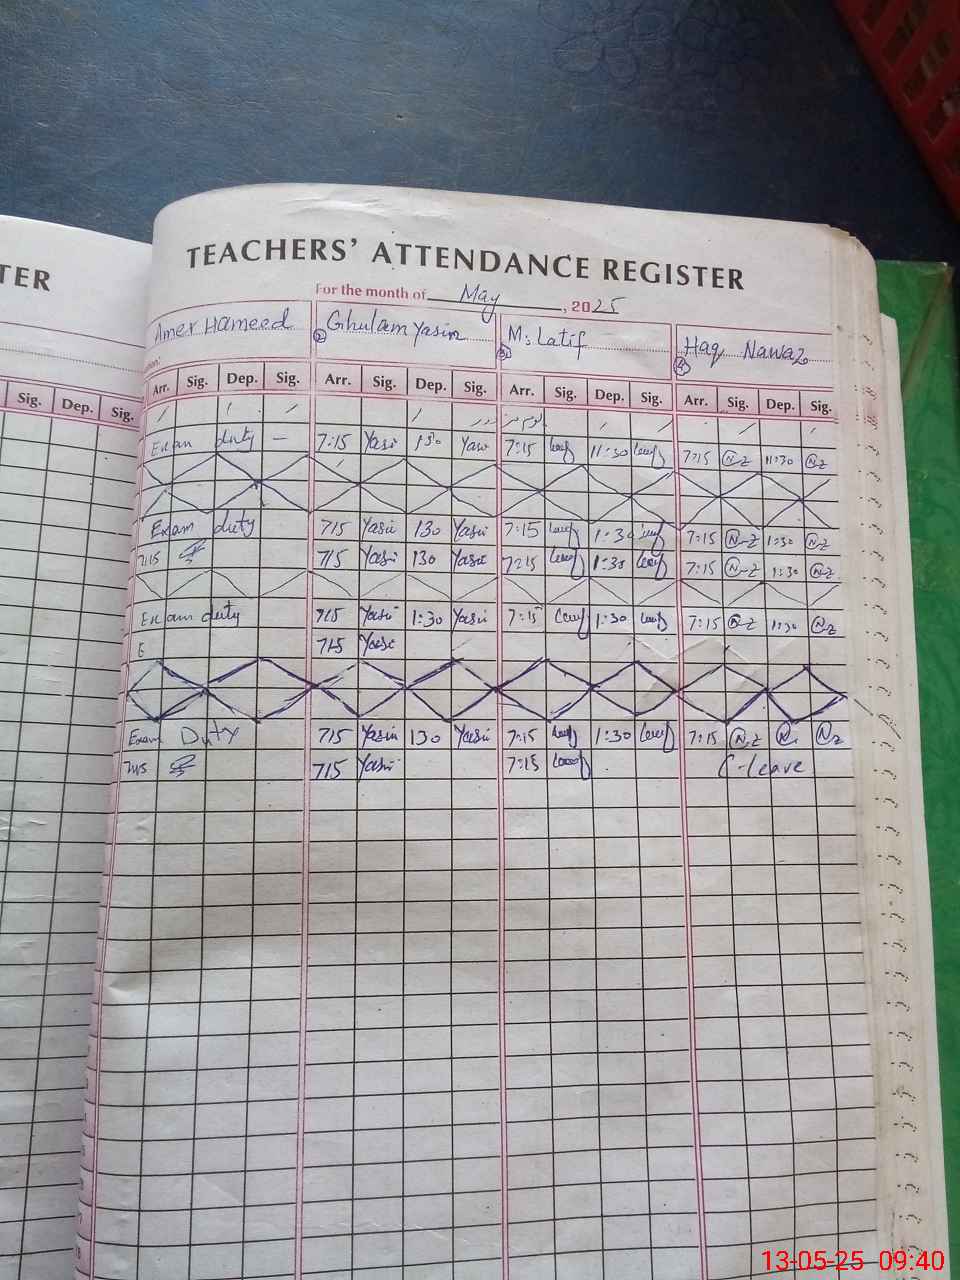 TER
TEACHERS' ATTENDANCE REGISTER
For the month of May, 2025
Amer Hameed ② Ghulam Yasin ③ M. Latif ④ Haq Nawaz
Sig. Dep. Sig. Arr. Sig. Dep. Sig. Arr. Sig. Dep. Sig. Arr. Sig. Dep. Sig. Arr. Sig. Dep. Sig.
Exam duty — 7:15 Yasir 130 Yasir 7:15 11:30 7:15 N-Z 11:30 N-Z
Exam duty 715 Yasir 130 Yasir 7:15 1:30 7:15 N-Z 1:30 N-Z
7:15 715 Yasir 130 Yasir 7:15 1:30 7:15 N-Z 1:30 N-Z
Exam duty 715 Yasir 1:30 Yasir 7:15 1:30 7:15 N-Z 1:30 N-Z
E 715 Yasir
Exam Duty 715 Yasin 130 Yasir 7:15 1:30 7:15 N-Z N. N-Z
7:15 715 Yasir 7:15 C-leave
13-05-25 09:40